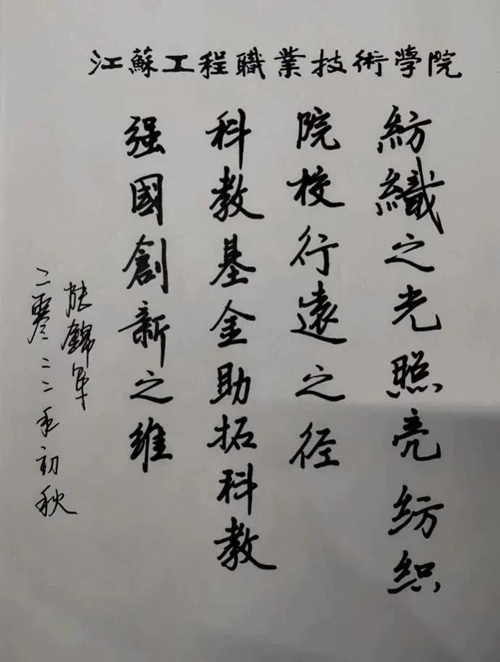 江蘇工程職業技術學院
紡織之光照亮纺织
院校行遠之径
科教基金助拓科教
强國創新之维
錦军
二零二二年初秋